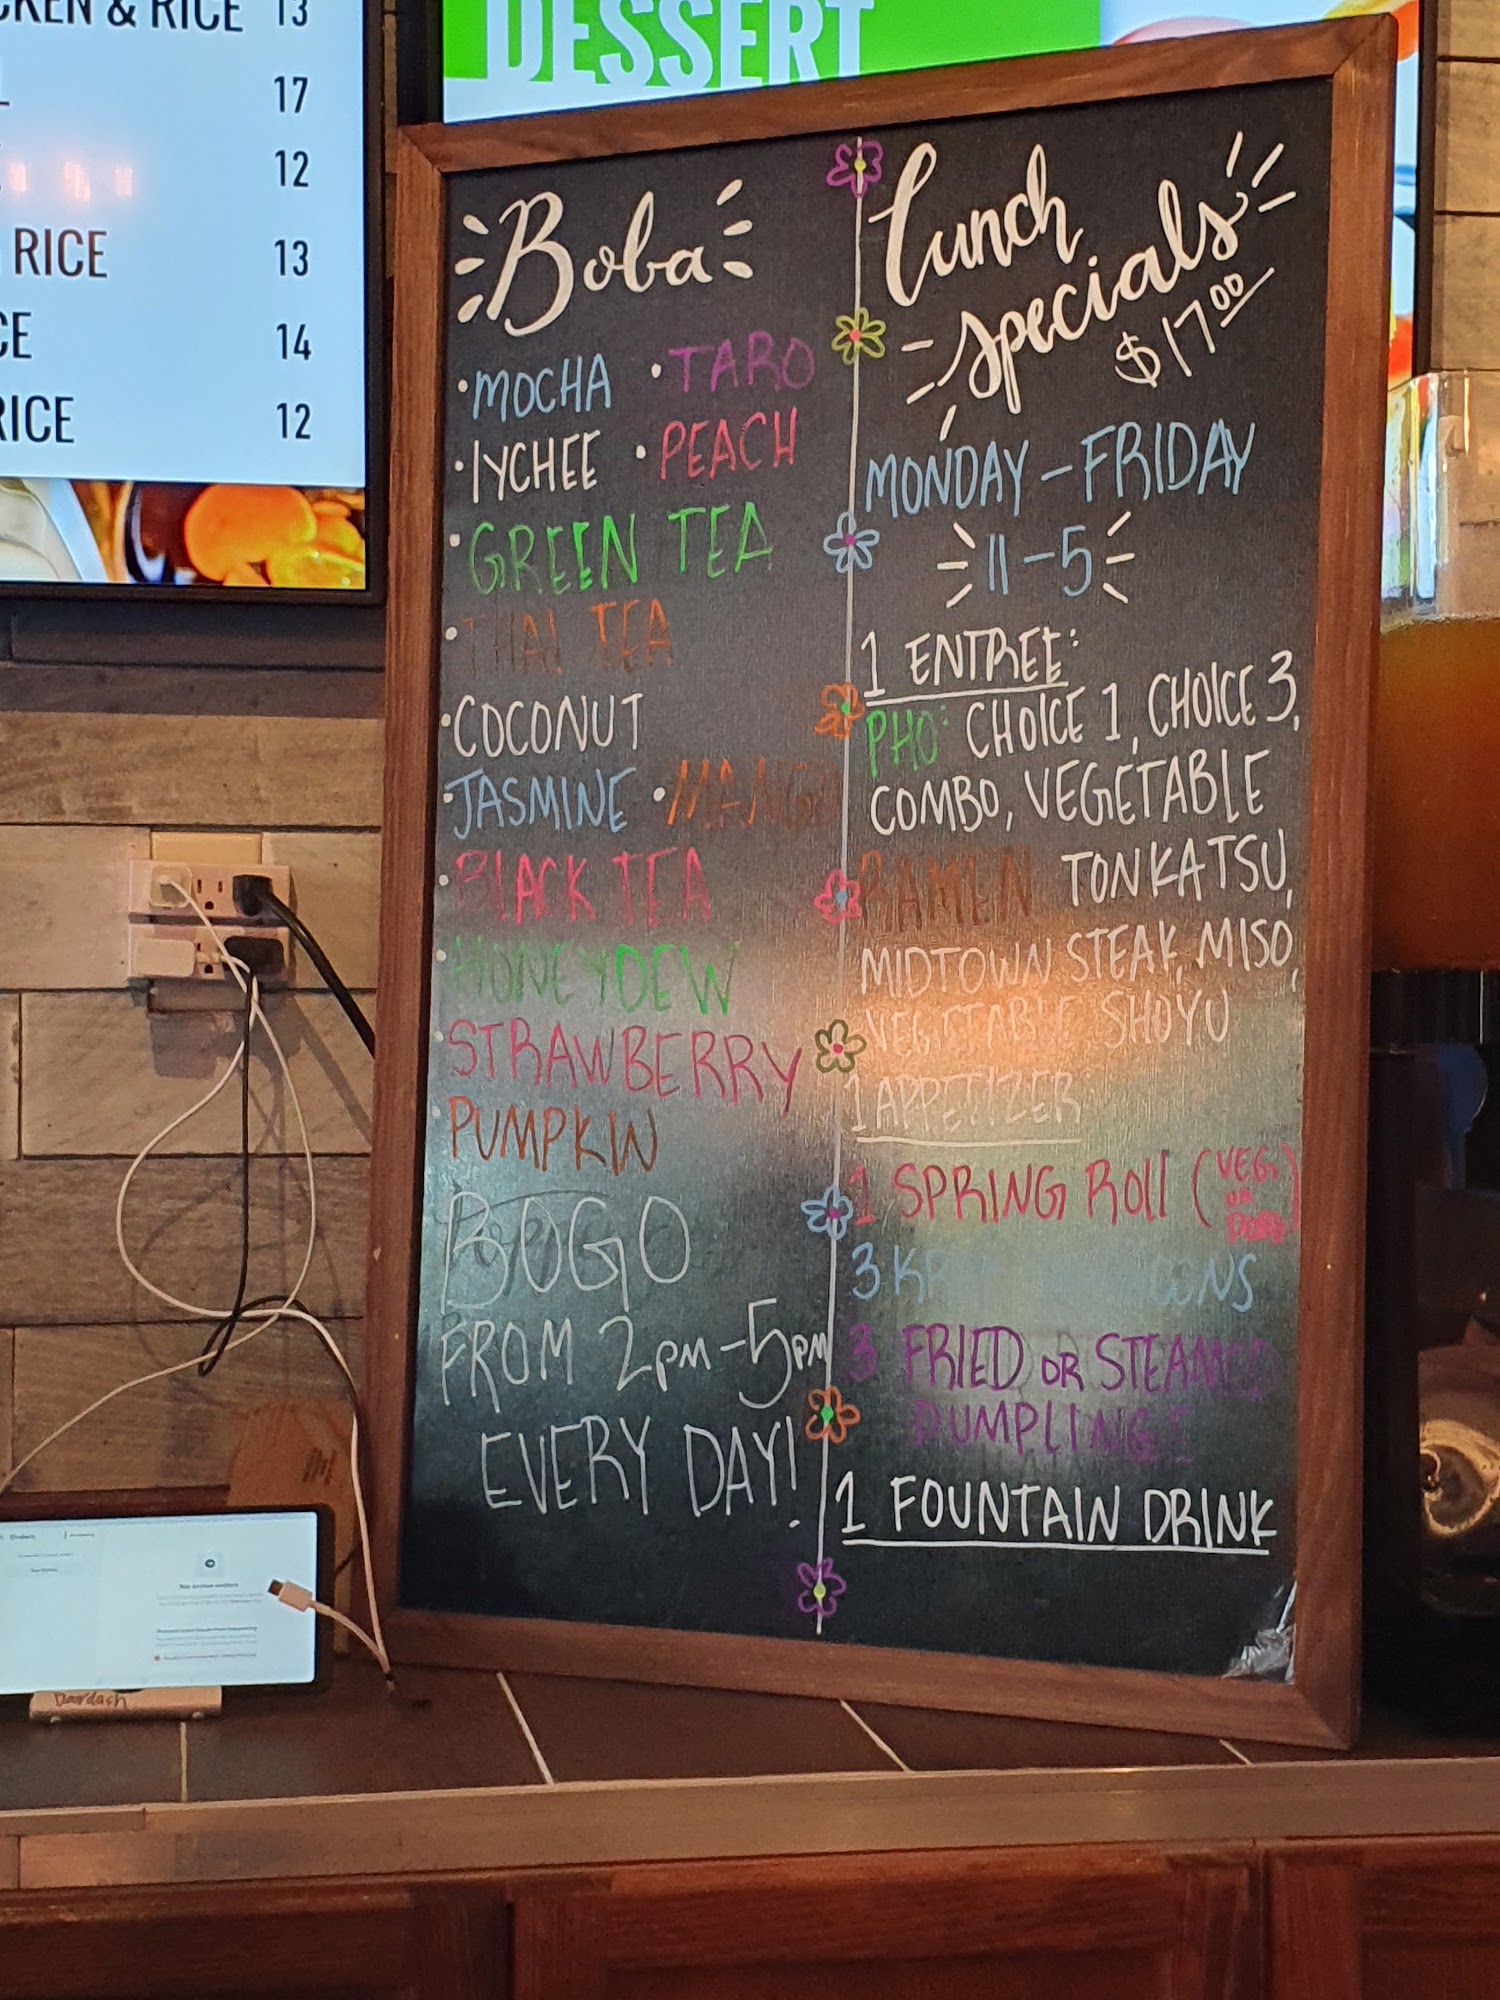 KEN & RICE 13
17
12
RICE 13
CE 14
RICE 12
DESSERT
Boba
•MOCHA •TARO
•LYCHEE •PEACH
•GREEN TEA
•THAI TEA
•COCONUT
•JASMINE •MANGO
•BLACK TEA
•HONEYDEW
STRAWBERRY
PUMPKIN
BOGO
FROM 2PM-5PM
EVERY DAY!
Lunch
specials
$17.00
MONDAY-FRIDAY
11-5
1 ENTREE:
PHO: CHOICE 1, CHOICE 3,
COMBO, VEGETABLE
RAMEN TONKATSU,
MIDTOWN STEAK, MISO,
VEGETABLE SHOYU
1 APPETIZER
1 SPRING ROLL (VEG.
OR
PORK)
3
3 FRIED OR STEAMED
DUMPLINGS
1 FOUNTAIN DRINK
Doordash